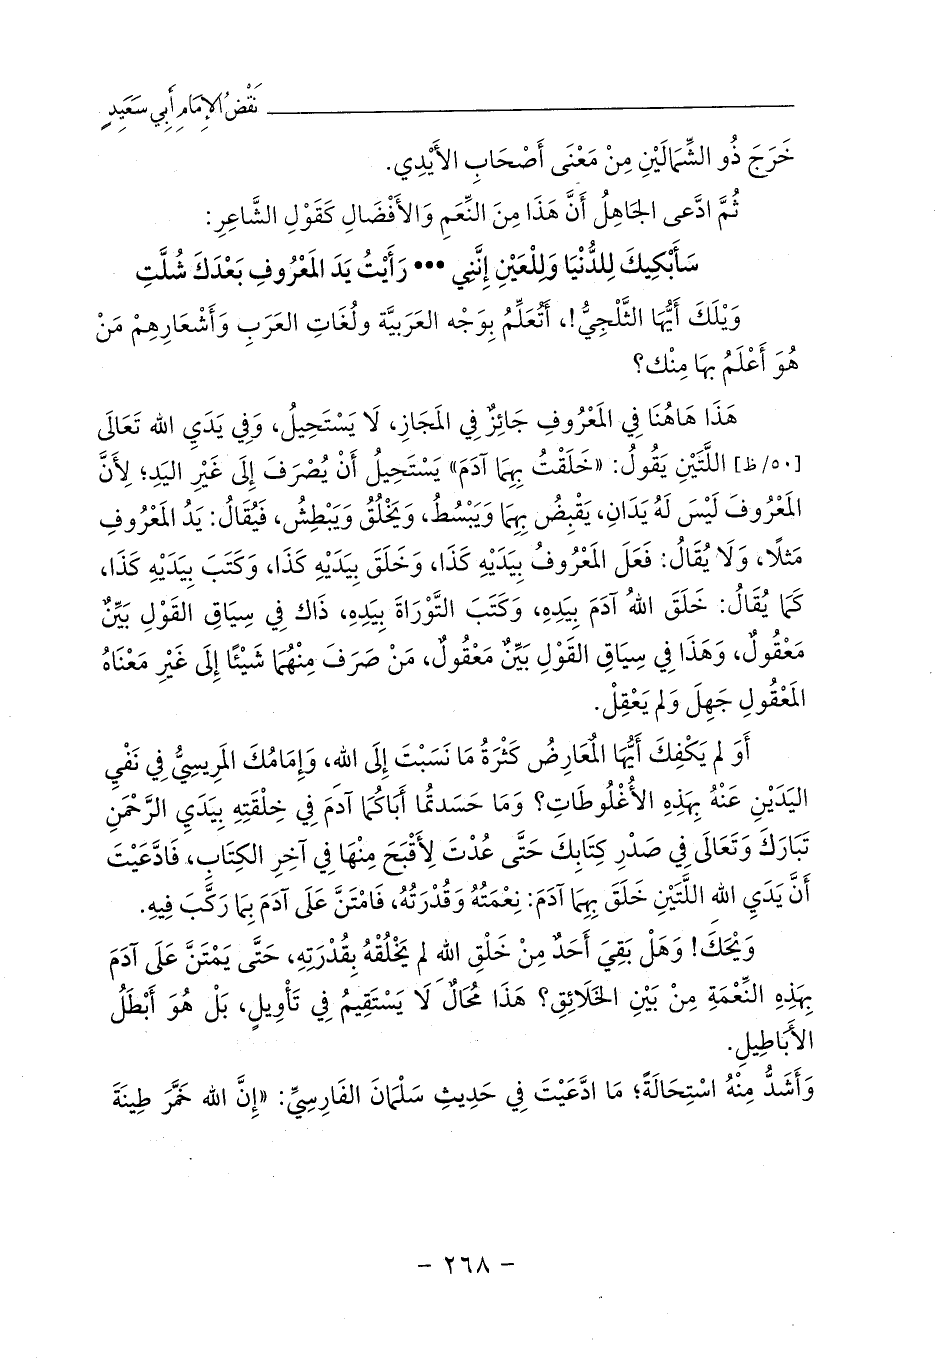 نَقْضُ الإِمَامِ أَبِي سَعِيدٍ
خَرَجَ ذُو الشِّمَالَيْنِ مِنْ مَعْنَى أَصْحَابِ الأَيْدِي.
ثُمَّ ادَّعَى الجَاهِلُ أَنَّ هَذَا مِنَ النِّعَمِ وَالأَفْضَالِ كَقَوْلِ الشَّاعِرِ:
سَأَبْكِيكَ لِلدُّنْيَا وَلِلْعَيْنِ إِنَّنِي ••• رَأَيْتُ يَدَ المَعْرُوفِ بَعْدَكَ شُلَّتِ
وَيْلَكَ أَيُّهَا الثَّلْجِيُّ!، أَتُعَلِّمُ بِوَجْه العَرَبِيَّة ولُغَاتِ العَرَبِ وَأَشْعَارِهِمْ مَنْ
هُوَ أَعْلَمُ بِهَا مِنْك؟
هَذَا هَاهُنَا فِي المَعْرُوفِ جَائِزٌ فِي المَجَازِ، لَا يَسْتَحِيلُ، وَفِي يَدَيِ الله تَعَالَى
[٥٠/ظ] اللَّتَيْنِ يَقُولُ: «خَلَقْتُ بِهِمَا آدَمَ» يَسْتَحِيلُ أَنْ يُصْرَفَ إِلَى غَيْرِ اليَدِ؛ لِأَنَّ
المَعْرُوفَ لَيْسَ لَهُ يَدَانِ، يَقْبِضُ بِهِمَا وَيَبْسُطُ، وَيَخْلُقُ وَيَبْطِشُ، فَيُقَالُ: يَدُ المَعْرُوفِ
مَثَلًا، وَلَا يُقَالُ: فَعَلَ المَعْرُوفُ بِيَدَيْهِ كَذَا، وَخَلَقَ بِيَدَيْهِ كَذَا، وَكَتَبَ بِيَدَيْهِ كَذَا،
كَمَا يُقَالُ: خَلَقَ اللهُ آدَمَ بِيَدِهِ، وَكَتَبَ التَّوْرَاةَ بِيَدِهِ، ذَاكَ فِي سِيَاقِ القَوْلِ بَيِّنٌ
مَعْقُولٌ، وَهَذَا فِي سِيَاقِ القَوْلِ بَيِّنٌ مَعْقُولٌ، مَنْ صَرَفَ مِنْهُمَا شَيْئًا إِلَى غَيْرِ مَعْنَاهُ
المَعْقُولِ جَهِلَ وَلَم يَعْقِلْ.
أَوَ لم يَكْفِكَ أَيُّهَا المُعَارِضُ كَثْرَةُ مَا نَسَبْتَ إِلَى الله، وَإِمَامُكَ المَرِيسِيُّ فِي نَفْيِ
اليَدَيْنِ عَنْهُ بِهَذِهِ الأُغْلُوطَاتِ؟ وَمَا حَسَدتُمَا أَبَاكُمَا آدَمَ فِي خِلْقَتِهِ بِيَدَيِ الرَّحْمَنِ
تَبَارَكَ وَتَعَالَى فِي صَدْرِ كِتَابِكَ حَتَّى عُدْتَ لِأَقْبَحَ مِنْهَا فِي آخِرِ الكِتَابِ، فَادَّعَيْتَ
أَنَّ يَدَيِ الله اللَّتَيْنِ خَلَقَ بِهِمَا آدَمَ: نِعْمَتُهُ وَقُدْرَتُهُ، فَامْتَنَّ عَلَى آدَمَ بِمَا رَكَّبَ فِيهِ.
وَيْحَكَ! وَهَلْ بَقِيَ أَحَدٌ مِنْ خَلْقِ الله لم يَخْلُقْهُ بِقُدْرَتِهِ، حَتَّى يَمْتَنَّ عَلَى آدَمَ
بِهَذِهِ النِّعْمَةِ مِنْ بَيْنِ الخَلَائِقِ؟ هَذَا مُحَالٌ لَا يَسْتَقِيمُ فِي تَأْوِيلٍ، بَلْ هُوَ أَبْطَلُ
الأَبَاطِيلِ.
وَأَشَدُّ مِنْهُ اسْتِحَالَةً؛ مَا ادَّعَيْتَ فِي حَدِيثِ سَلْمَانَ الفَارِسِيِّ: «إِنَّ الله خَمَّرَ طِينَةَ
- ٢٦٨ -